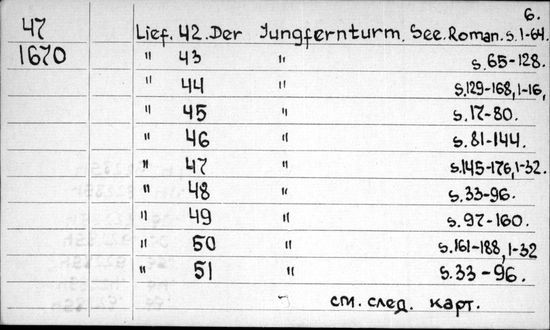 6.
47 Lief. 42. Der Jungfernturm. See. Roman. s. 1-64.
1670 " 43 " s. 65-128.
" 44 " s. 129-168, 1-16,
" 45 " s. 17-80.
" 46 " s. 81-144.
" 47 " s. 145-176, 1-32.
" 48 " s. 33-96.
" 49 " s. 97-160.
" 50 " s. 161-188, 1-32
" 51 " s. 33-96.
см. след. карт.